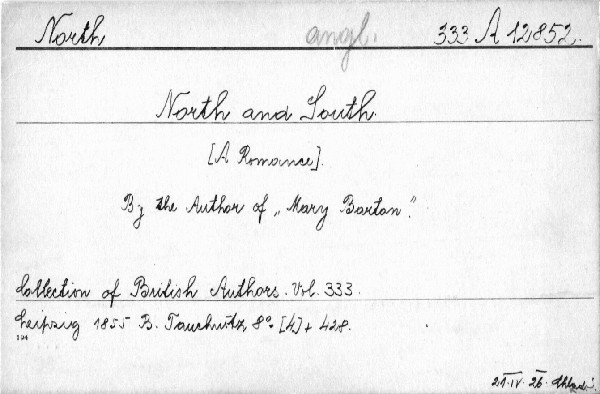 North angl. 333 A 12852.
North and South.
[A Romance].
By the Author of „Mary Barton".
Collection of British Authors. Vol. 333.
Leipzig 1855 B. Tauchnitz 8° [4] + 428.
194
21-IV-26.